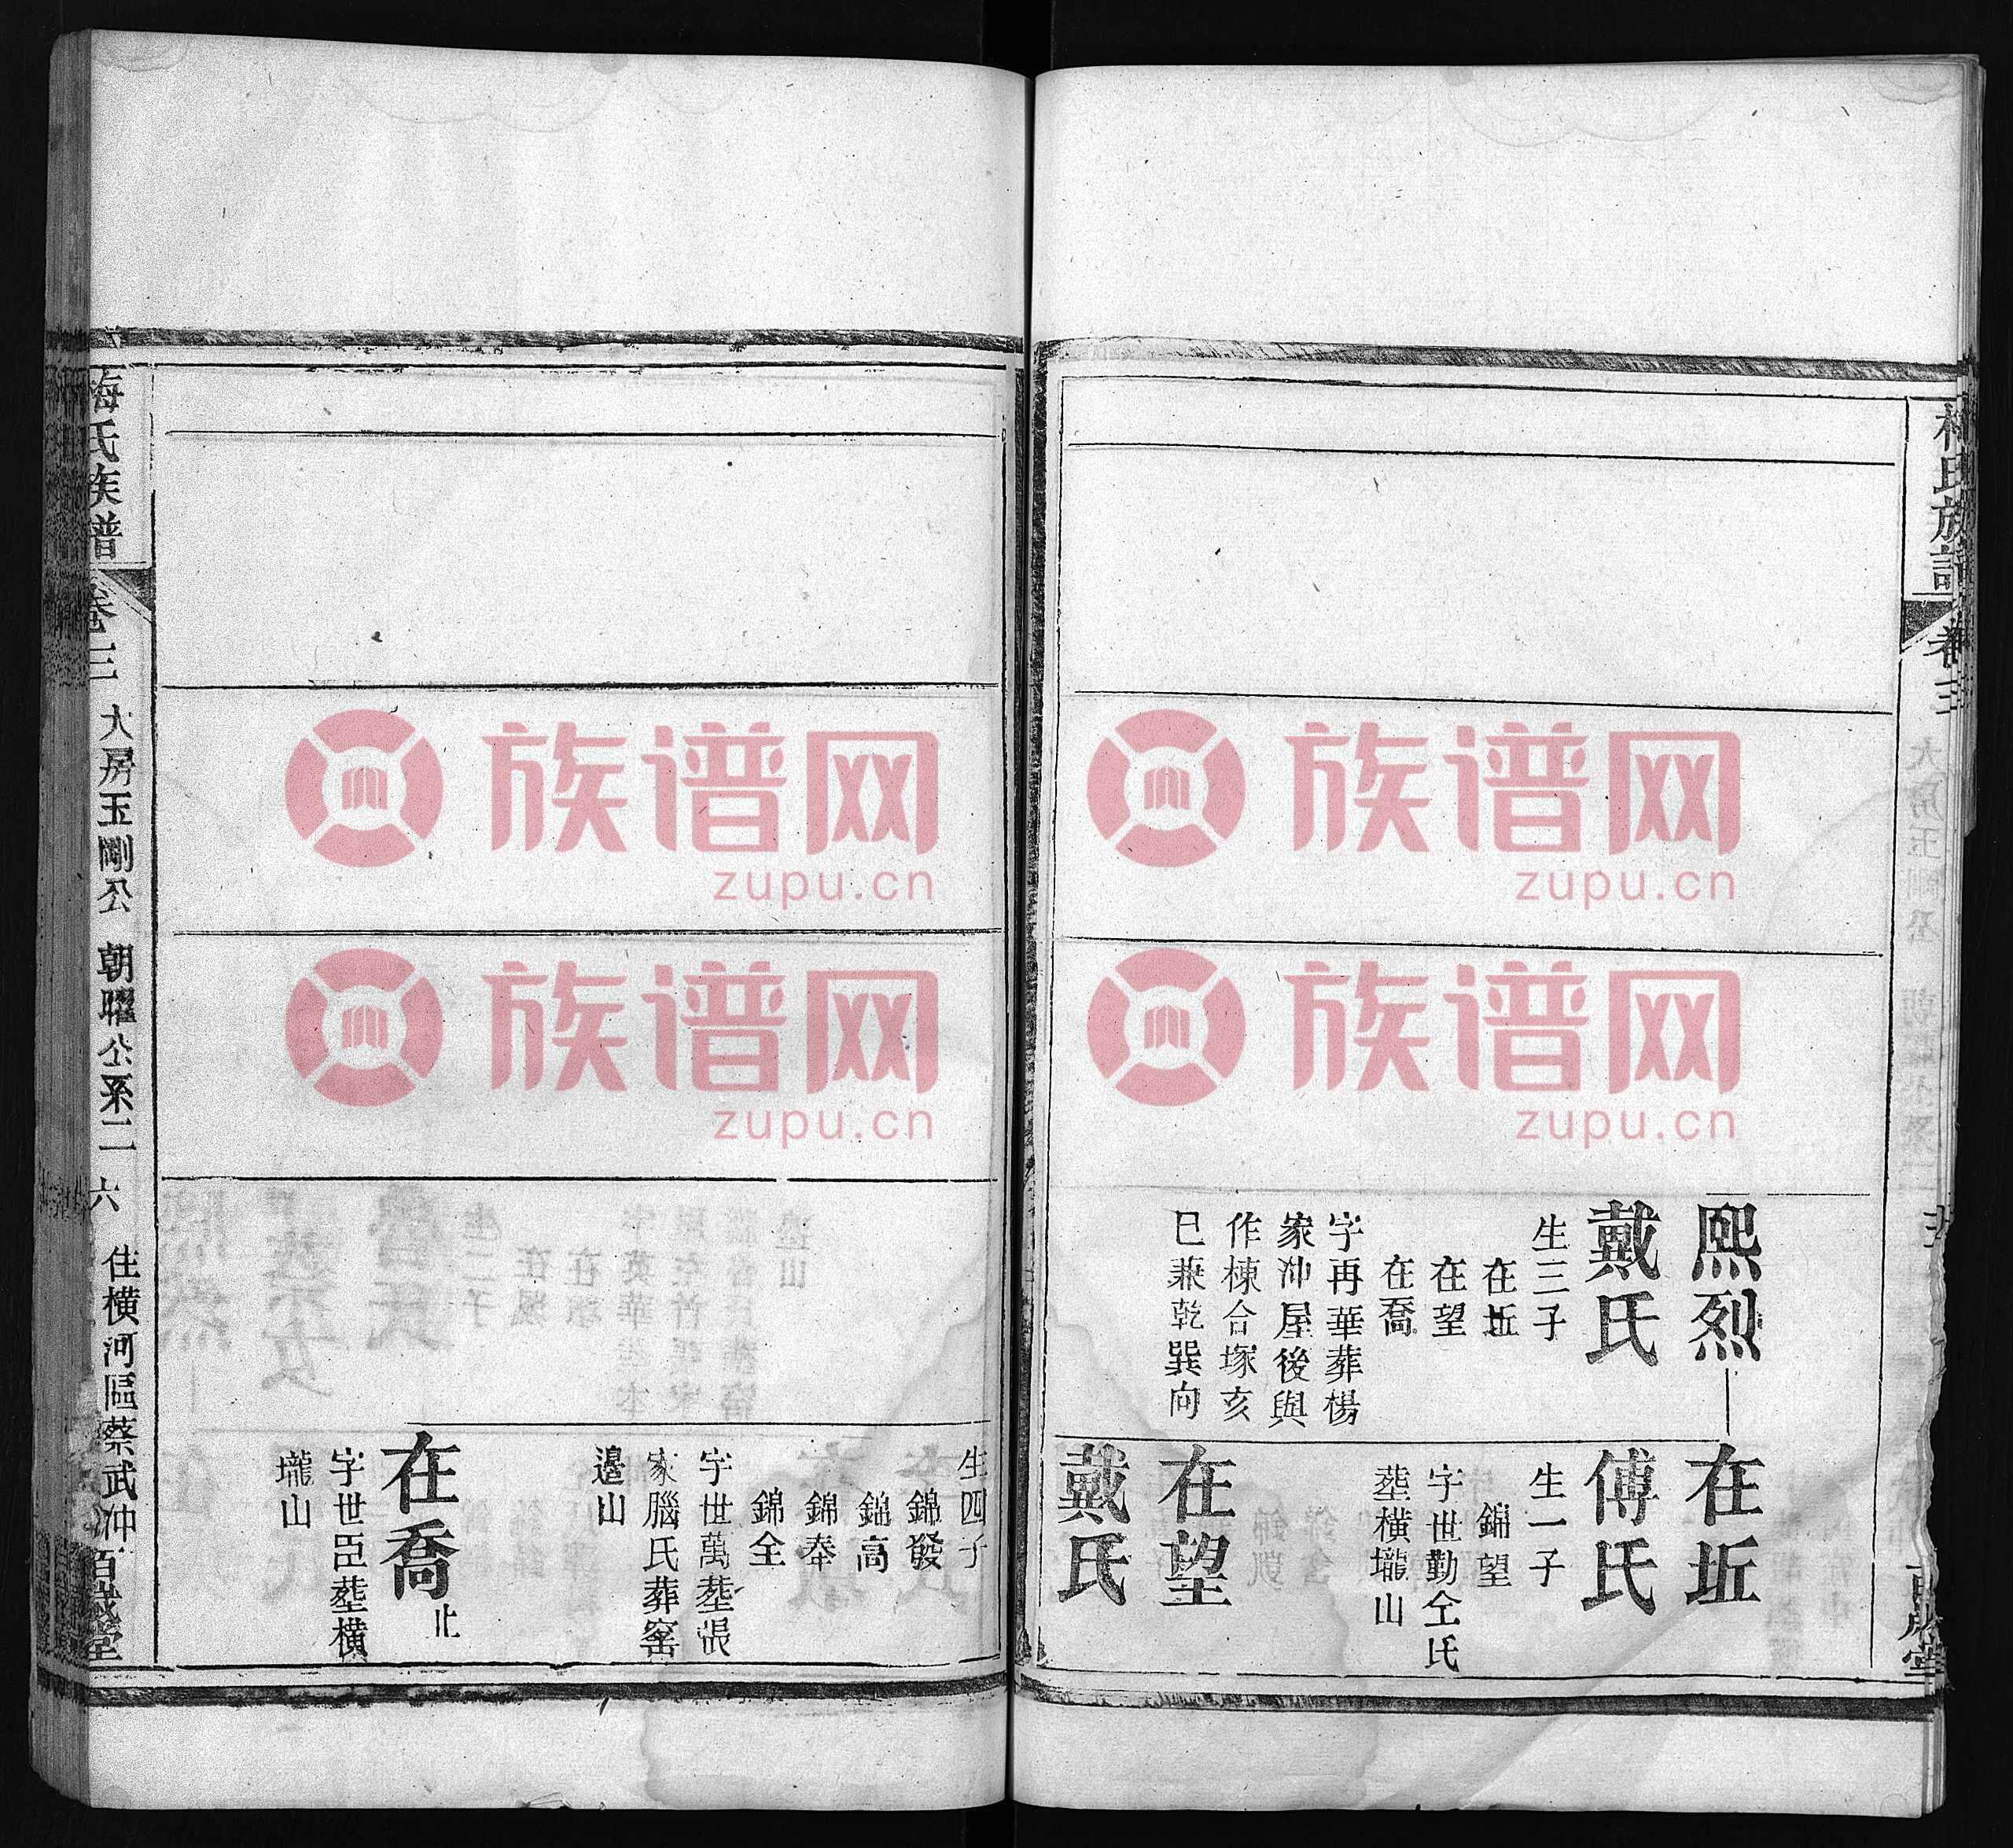 梅氏族譜
卷三
熙烈
戴氏
生三子
在坵
在望
在喬
字再華葬楊
家冲屋後與
作棟合塚亥
巳兼乾巽向
在坵
傅氏
生一子
錦望
字世勤仝氏
塟横壠山
在望
戴氏
生四子
錦發
錦高
錦奉
錦全
字世萬塟張
家腦氏葬窰
邉山
在喬止
字世臣塟横
壠山
梅氏族譜
卷三
大房玉剛公 朝曜公系二
六
住横河區蔡武冲
百歲堂
族谱网
zupu.cn
族谱网
zupu.cn
族谱网
zupu.cn
族谱网
zupu.cn